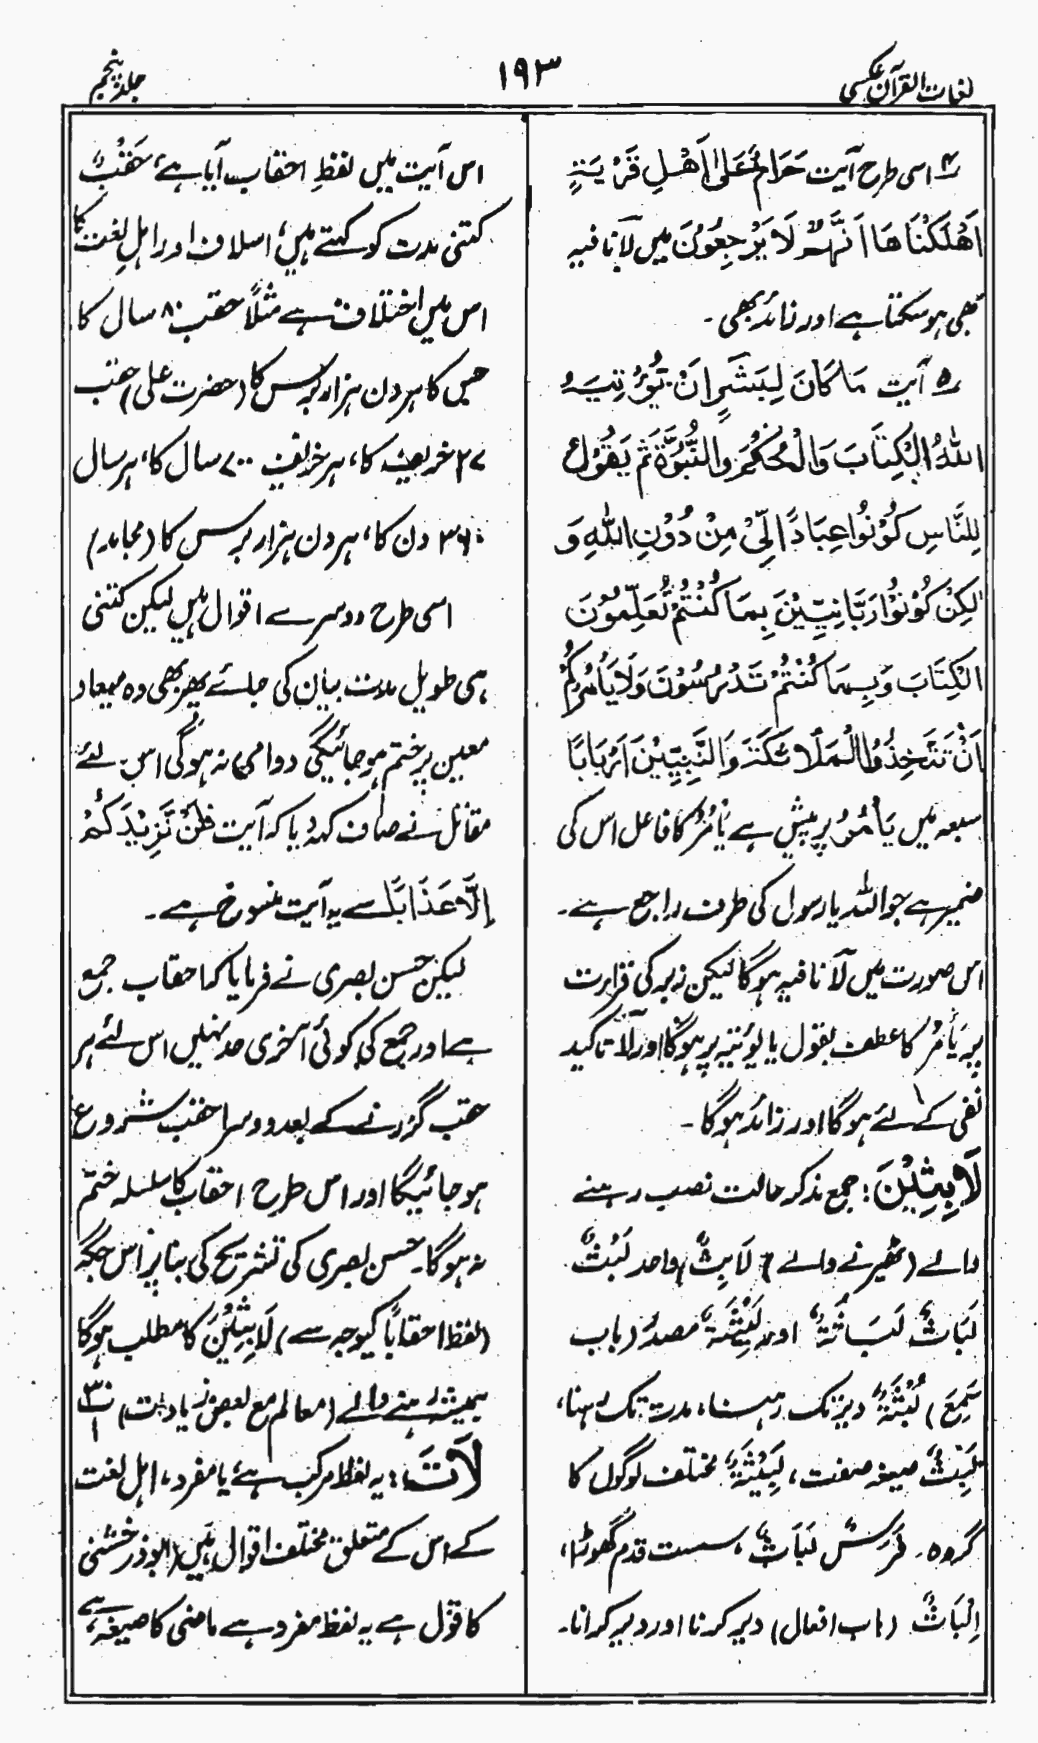 لغات القرآن عکسی
۱۹۳
جلد پنجم
۴؎ اسی طرح آیت حَرَامٌ عَلٰی اَھْلِ قَرْیَۃٍ
اَھْلَکْنَاھَا اَنَّھُمْ لَا یَرْجِعُوْنَ میں لا نافیہ
بھی ہوسکتا ہے اور زائد بھی۔
۵؎ آیت مَا کَانَ لِبَشَرٍ اَنْ یُّؤْتِیَہُ
اللہُ الْکِتَابَ وَالْحُکْمَ وَالنُّبُوَّۃَ ثُمَّ یَقُوْلَ
لِلنَّاسِ کُوْنُوْا عِبَادًا لِّیْ مِنْ دُوْنِ اللہِ وَ
لٰکِنْ کُوْنُوْا رَبَّانِیِّیْنَ بِمَا کُنْتُمْ تُعَلِّمُوْنَ
الْکِتَابَ وَبِمَا کُنْتُمْ تَدْرُسُوْنَ وَلَا یَأْمُرُکُمْ
اَنْ تَتَّخِذُوا الْمَلَائِکَۃَ وَالنَّبِیِّیْنَ اَرْبَابًا
سبعہ میں یَأْمُرُ پر پیش ہے یَأْمُرُ کا فاعل اس کی
ضمیر ہے جو اللہ یا رسول کی طرف راجع ہے۔
اس صورت میں لا نافیہ ہوگا لیکن زبر کی قرارت
پر یَأْمُرَ کا عطف یقول یا یؤتیہ پر ہوگا اور لا تاکید
نفی کے لئے ہوگا اور زائد ہوگا۔
لَابِثِیْنَ: جمع مذکر حالت نصب رہنے
والے (ٹھیرنے والے) لَابِثٌ واحد لَبْثٌ
لَبَاثٌ لَبَاثَۃٌ اور لَبِیْثَۃٌ مصدر (باب
سَمِعَ) لُبْثَۃٌ دیر تک رہنا، مدت تک رہنا،
لَبِثٌ صیغہ صفت، لَبِیْثَۃٌ مختلف لوگوں کا
گروہ۔ فَرَسٌ لَبَاثٌ، سست قدم گھوڑا،
اِلْبَاثٌ (باب افعال) دیر کرنا اور دیر کرانا۔
اس آیت میں لفظِ احقاب آیا ہے، حَقْبٌ
کتنی مدت کو کہتے ہیں، اسلاف اور اہلِ لغت کا
اس میں اختلاف ہے مثلاً حقب ۸۰ سال کا
جس کا ہر دن ہزار برس کا (حضرت علی) حقب
خریف کا، ہر خریف ۷۰۰ سال کا، ہر سال
۳۶۰ دن کا، ہر دن ہزار برس کا (مجاہد)
اسی طرح دوسرے اقوال ہیں لیکن کتنی
ہی طویل مدت بیان کی جائے پھر بھی وہ میعاد
معین پر ختم ہو جائیگی دوامی نہ ہوگی اس لئے
مقاتل نے صاف کہدیا کہ آیت فَلَنْ نَّزِیْدَکُمْ
اِلَّا عَذَابًا سے یہ آیت منسوخ ہے۔
لیکن حسن بصری نے فرمایا کہ احقاب جمع
ہے اور جمع کی کوئی آخری حد نہیں اس لئے ہر
حقب گزرنے کے بعد دوسرا حقب شروع
ہو جائیگا اور اس طرح احقاب کا سلسلہ ختم
نہ ہوگا۔ حسن بصری کی تشریح کی بنا پر اس جگہ
(لفظ احقاباً کیوجہ سے) لَابِثِیْنَ کا مطلب ہوگا
ہمیشہ رہنے والے (معالم مع بعض زیادت)
لَاتَ: یہ لفظ مرکب ہے یا مفرد، اہل لغت
کے اس کے متعلق مختلف اقوال ہیں (ابوذر خشنی
کا قول ہے یہ لفظ مفرد ہے ماضی کا صیغہ ہے